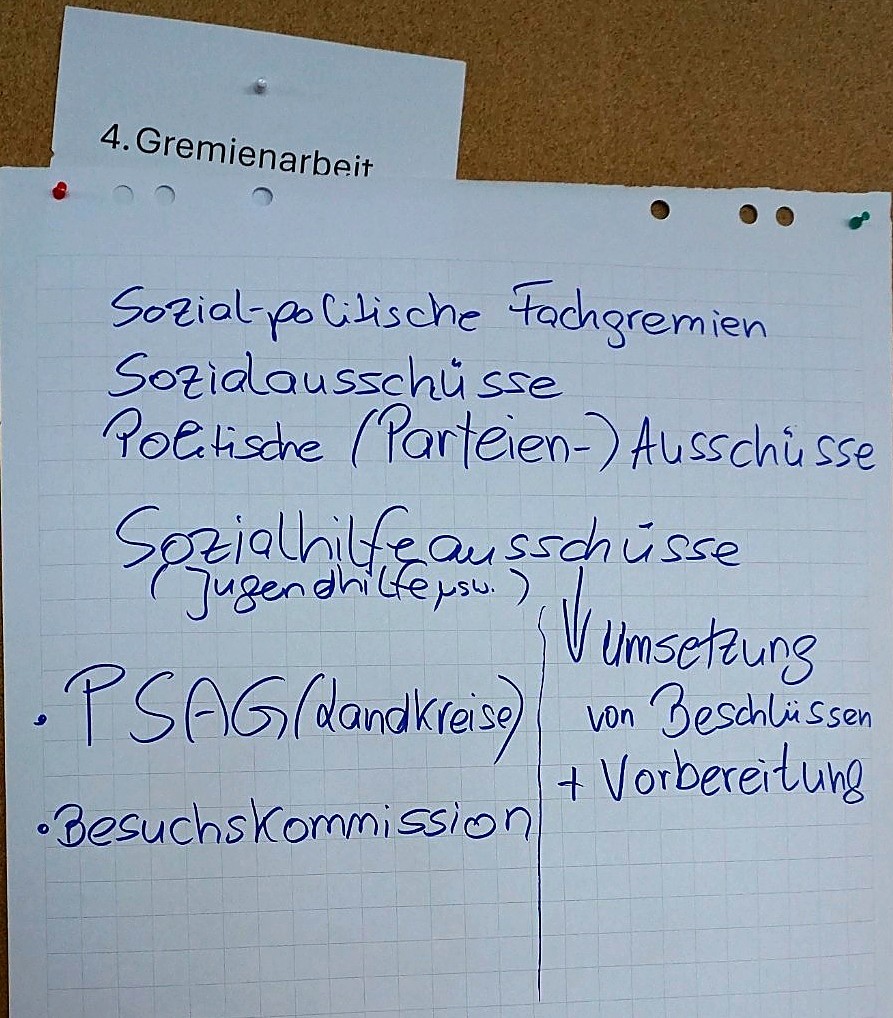 4. Gremienarbeit
Sozial-politische Fachgremien
Sozialausschüsse
Politische (Parteien-) Ausschüsse
Sozialhilfeausschüsse
(Jugendhilfe usw.)
Umsetzung
von Beschlüssen
+ Vorbereitung
• PSAG (Landkreise)
• Besuchskommission